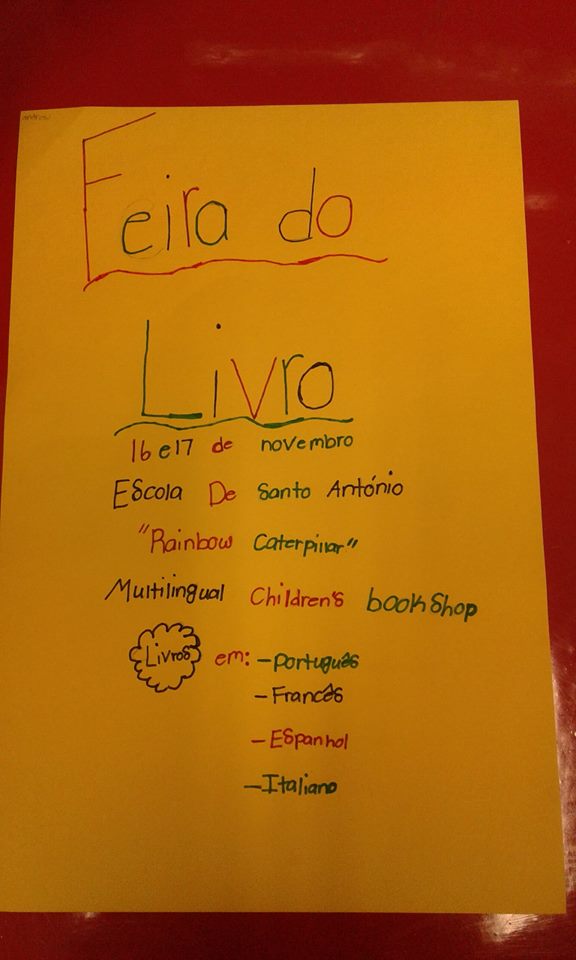 Feira do
Livro
16 e 17 de novembro
Escola De Santo António
"Rainbow Caterpillar"
Multilingual Children's bookshop
Livros em: - Português
- Francês
- Espanhol
- Italiano